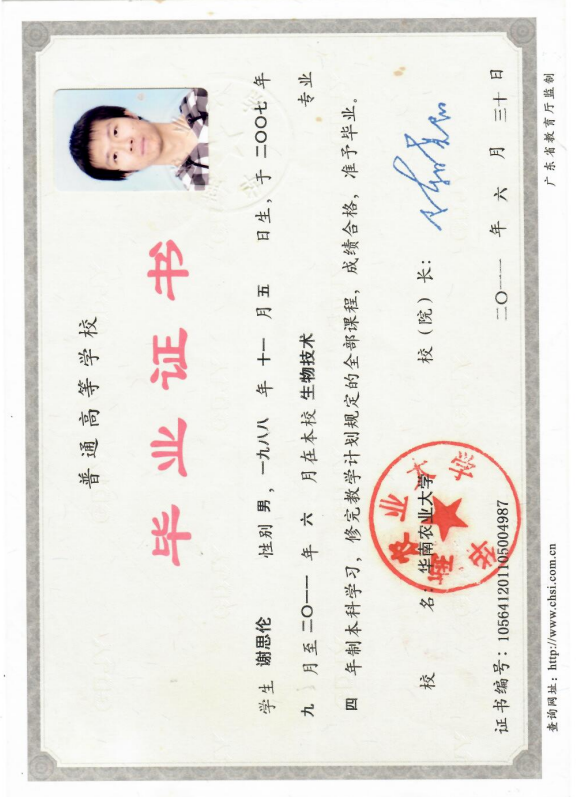 普通高等学校
毕业证书
学生 谢思伦 性别 男，一九八八 年 十一 月 五 日生，于 二〇〇七 年
九 月至 二〇一一 年 六 月在本校 生物技术 专业
四 年制本科学习，修完教学计划规定的全部课程，成绩合格，准予毕业。
校 名：华南农业大学 校（院）长：
证书编号：105641201105004987 二〇一一 年 六 月 三十 日
查询网址：http://www.chsi.com.cn 广东省教育厅监制